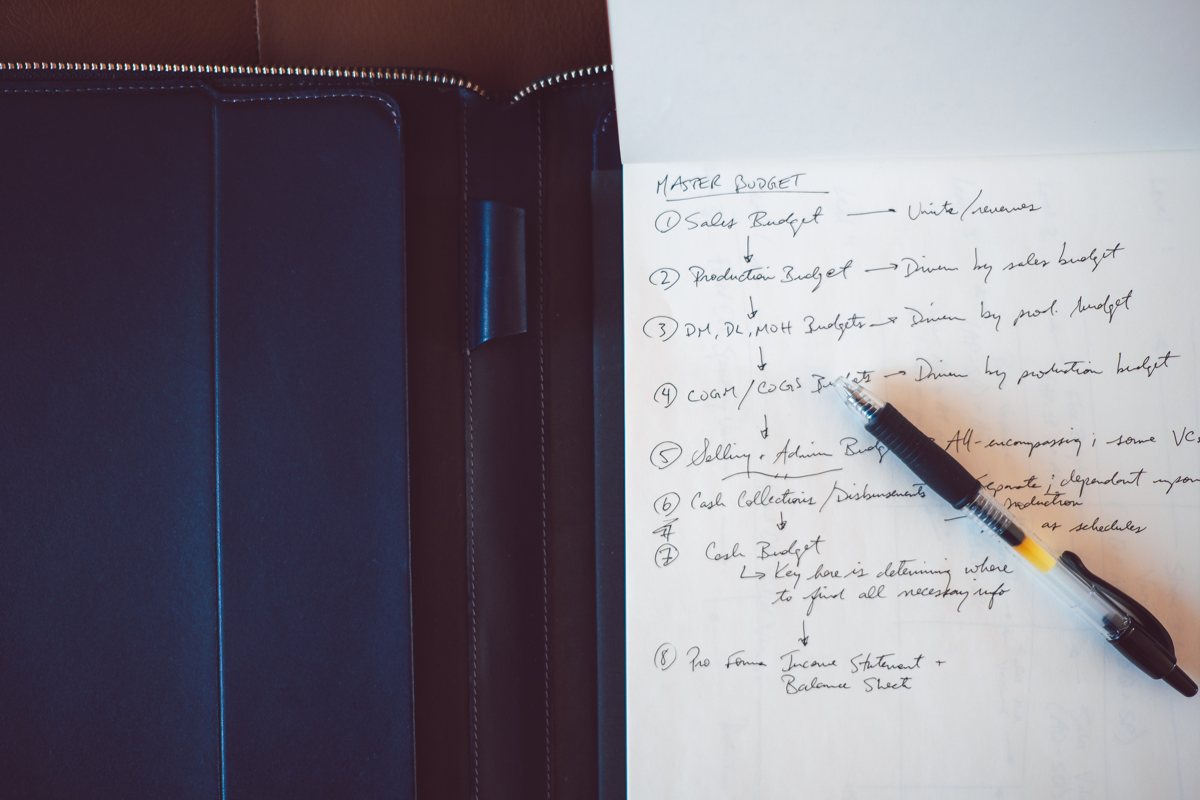 MASTER BUDGET
① Sales Budget — Units/revenues
② Production Budget → Driven by sales budget
③ DM, DL, MOH Budgets → Driven by prod. budget
④ COGM/COGS Budgets → Driven by production budget
⑤ Selling + Admin All-encompassing; some
⑥ Cash Collections/Disbursements Separate; dependant upon
production
as schedules
⑦ Cash Budget
↳ Key here is determining where
to find all necessary info
⑧ Pro Forma Income Statement +
Balance Sheet